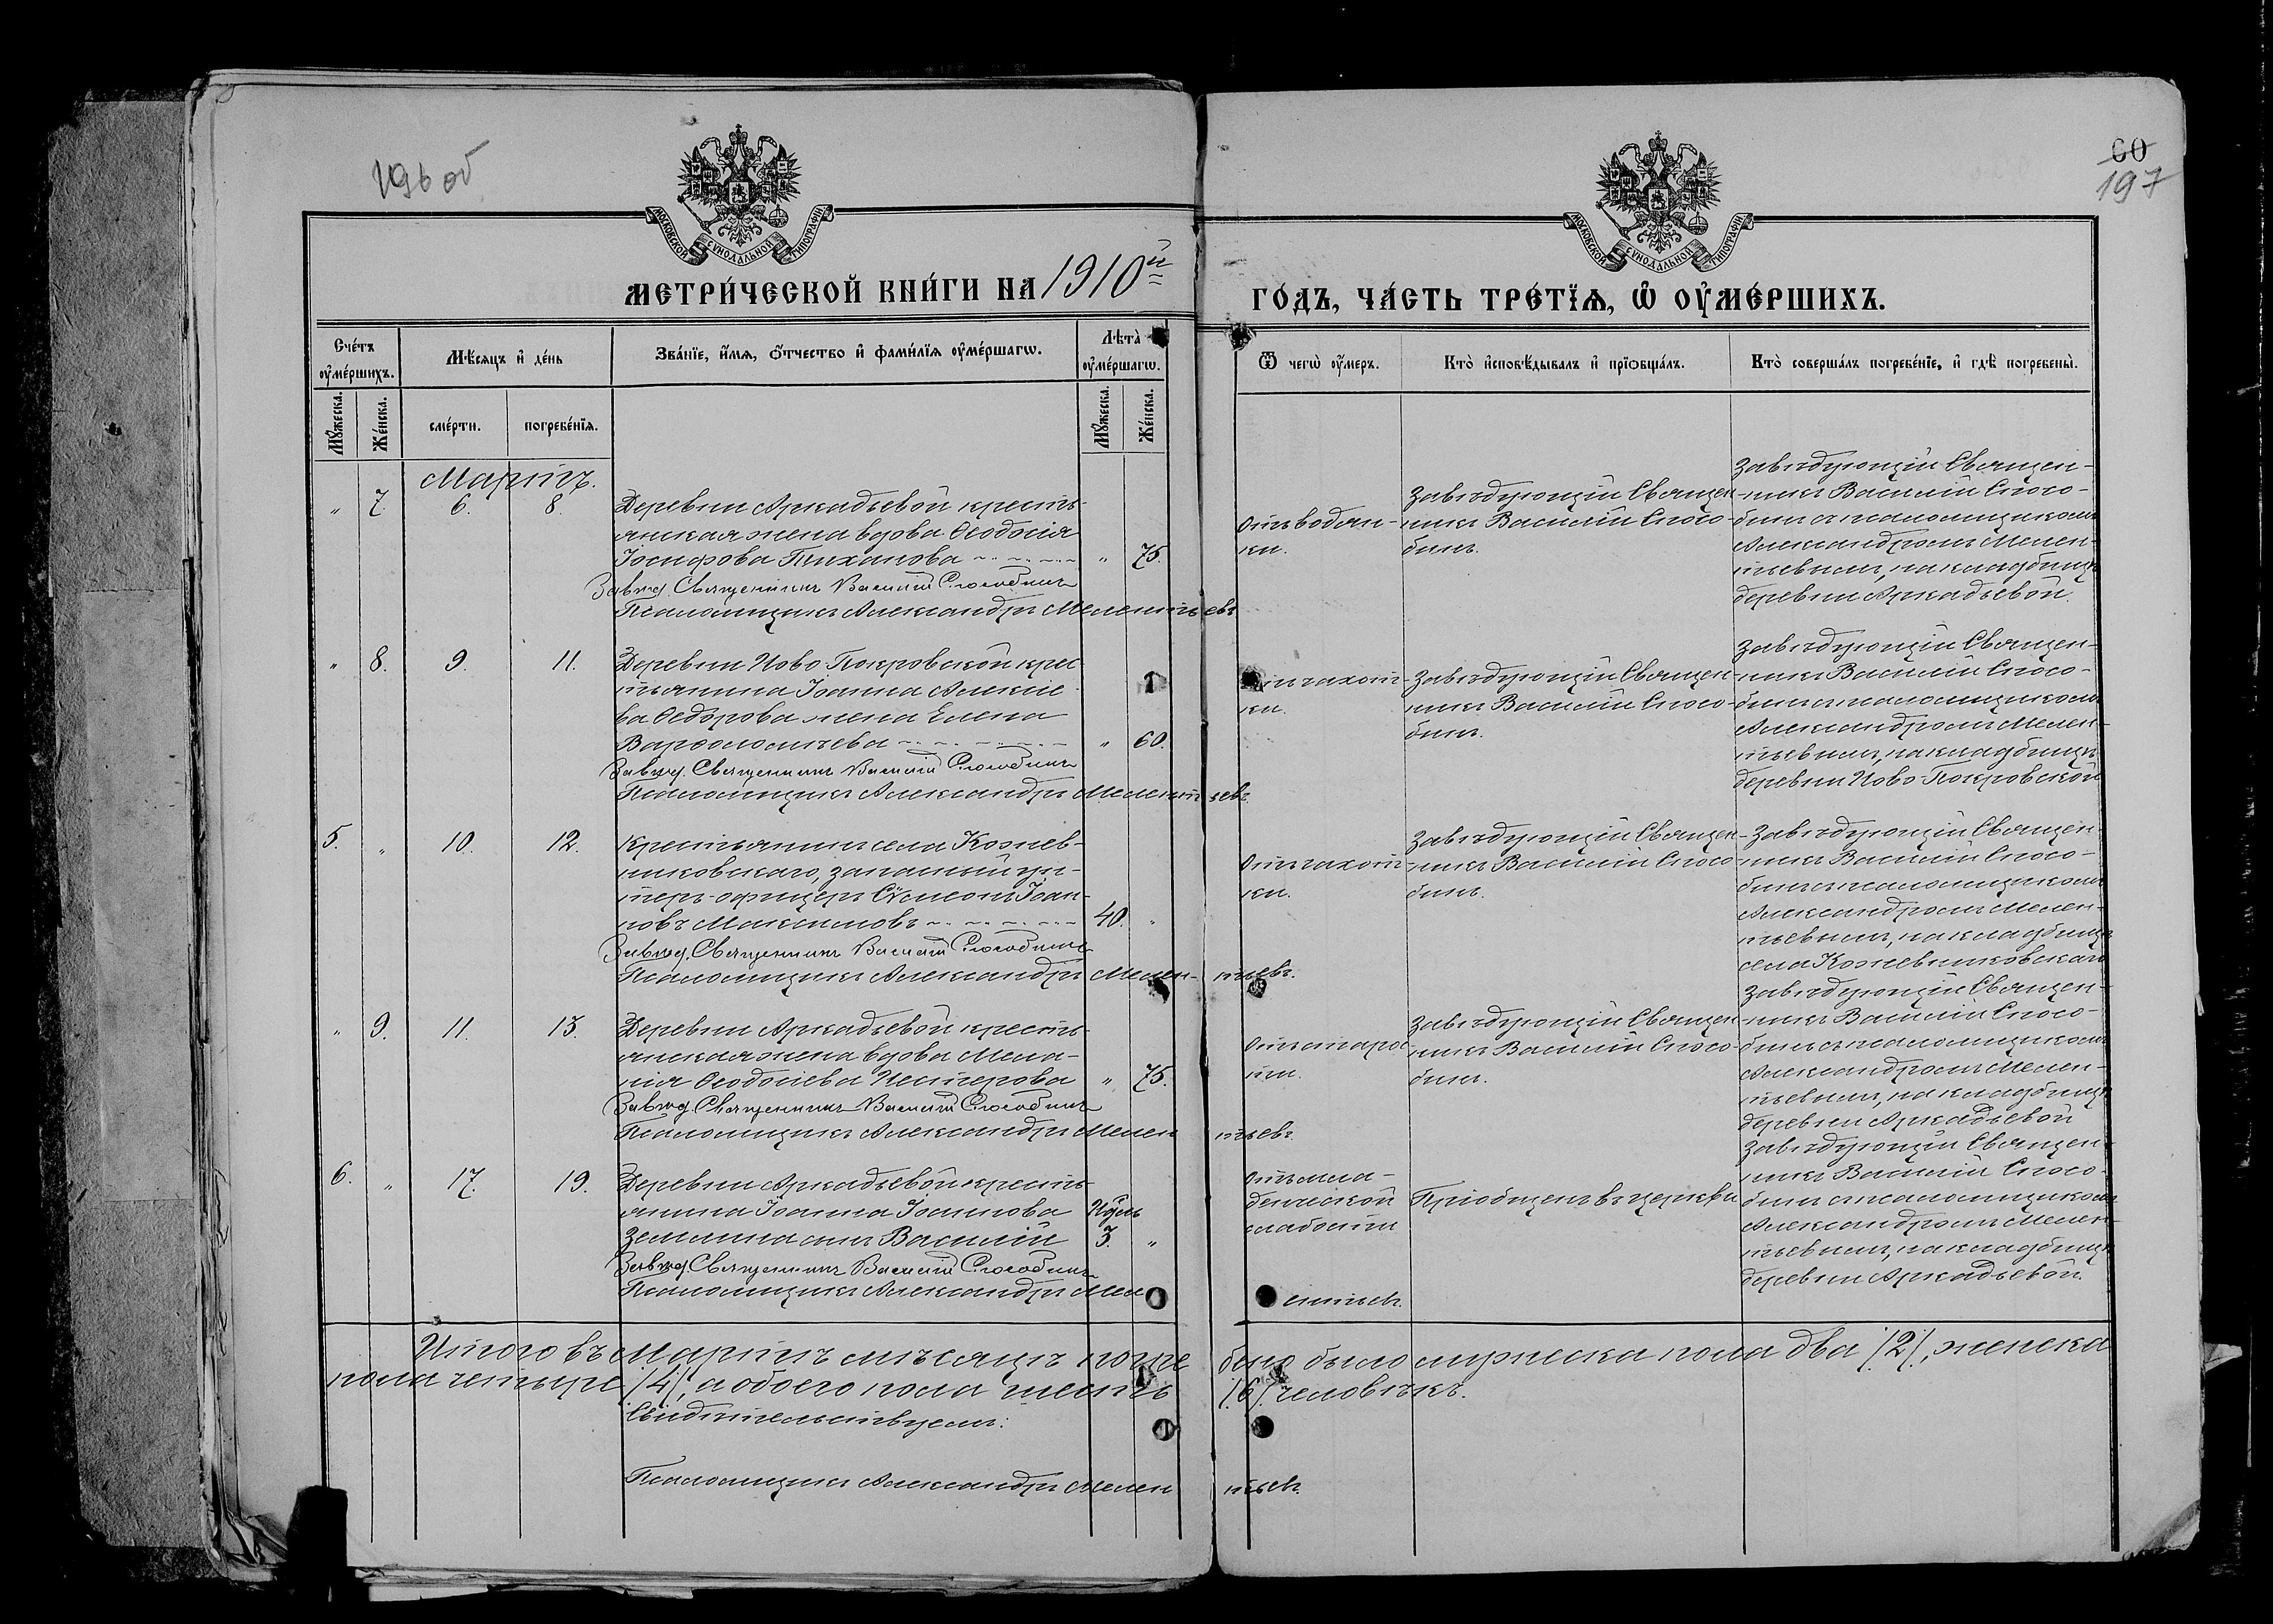 196 об
60
197
МОСКОВСКОЙ СУНОДАЛЬНОЙ ТИПОГРАФІИ
МОСКОВСКОЙ СУНОДАЛЬНОЙ ТИПОГРАФІИ
МЕТРИ́ЧЕСКОЙ КНИ́ГИ НА 1910й
ГО́ДЪ, ЧА́СТЬ ТРЕ́ТЇѦ, Ѡ҆ ОУ҆МЕ́РШИХЪ.
Сче́тъ оу҆ме́ршихъ.
Мѣ́сѧцъ и҆ де́нь
Зва́нїе, и҆́мѧ, ѻ҆́тчество и҆ фами́лїѧ оу҆ме́ршагѡ.
Лѣ́та оу҆ме́ршагѡ.
Ѿ чегѡ̀ оу҆́меръ.
Кто̀ и҆сповѣ́дывалъ и҆ прїѡбща́лъ.
Кто̀ соверша́лъ погребе́нїе, и҆ гдѣ̀ погребены̀.
Мꙋ́жеска.
Же́нска.
сме́рти.
погребе́нїѧ.
Мꙋ́жеска.
Же́нска.
Мартъ.
" 7. 6. 8.
Деревни Аркадьевой кресть-
янская жена вдова Ѳеодосія
Іосифова Тиханова " 75.
Завѣд. Священникъ Василій Способинъ
Псаломщикъ Александръ Мелентьевъ
Отъ водян-
ки.
Завѣдующій Священ-
никъ Василій Спосо-
бинъ.
Завѣдующій Священ-
никъ Василій Спосо-
бинъ съ псаломщикомъ
Александромъ Мелен-
тьевымъ, на кладбищѣ
деревни Аркадьевой.
" 8. 9. 11.
Деревни Ново-Покровской крес-
тьянина Іоанна Алексіе-
ва Ѳедорова жена Елена
Варѳоломѣева " 60.
Завѣд. Священникъ Василій Способинъ
Псаломщикъ Александръ Мелентьевъ.
Отъ чахот-
ки.
Завѣдующій Священ-
никъ Василій Спосо-
бинъ.
Завѣдующій Священ-
никъ Василій Спосо-
бинъ съ псаломщикомъ
Александромъ Мелен-
тьевымъ, на кладбищѣ
деревни Ново-Покровской
5. " 10. 12.
Крестьянинъ села Кожев-
никовскаго, запасный ун-
теръ-офицеръ Сѵмеонъ Іоан-
новъ Максимовъ 40. "
Завѣд. Священникъ Василій Способинъ
Псаломщикъ Александръ Мелен-тьевъ.
Отъ чахот-
ки.
Завѣдующій Священ-
никъ Василій Спосо-
бинъ.
Завѣдующій Священ-
никъ Василій Спосо-
бинъ съ псаломщикомъ
Александромъ Мелен-
тьевымъ, на кладбищѣ
села Кожевниковскаго
" 9. 11. 13.
Деревни Аркадьевой кресть-
янская жена вдова Мела-
нія Ѳеодосіева Нестерова " 75.
Завѣд. Священникъ Василій Способинъ
Псаломщикъ Александръ Мелентьевъ.
Отъ старос-
ти.
Завѣдующій Священ-
никъ Василій Спосо-
бинъ.
Завѣдующій Священ-
никъ Василій Спосо-
бинъ съ псаломщикомъ
Александромъ Мелен-
тьевымъ, на кладбищѣ
деревни Аркадьевой
6. " 17. 19.
Деревни Аркадьевой кресть-
янина Іоанна Іоаннова
Землина сынъ Василій 3. "
Завѣд. Священникъ Василій Способинъ
Псаломщикъ Александръ Мелентьевъ.
Отъ мла-
денческой
слабости
Пріобщенъ въ церкви
Завѣдующій Священ-
никъ Василій Спосо-
бинъ съ псаломщикомъ
Александромъ Мелен-
тьевымъ, на кладбищѣ
деревни Аркадьевой.
Итого въ Мартѣ мѣсяцѣ погребено было мужеска пола два /2/, женска
пола четыре /4/, а обоего пола шесть /6/ человѣкъ.
Свидѣтельствуемъ:
Псаломщикъ Александръ Мелентьевъ.